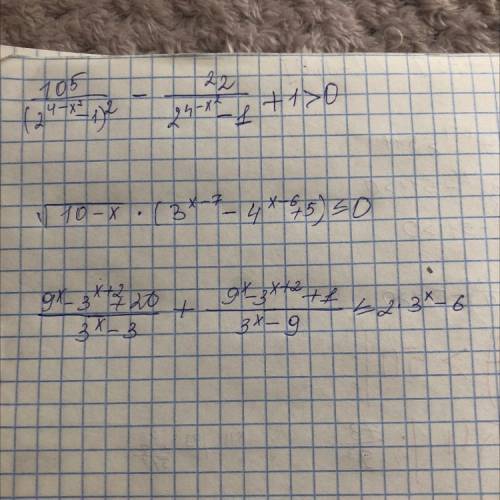 105/(2^(4-x²)-1)² - 22/(2^(4-x²)-1) + 1 > 0
√(10-x) · (3^(x-7) - 4^(x-6) + 5) ≤ 0
(9^x - 3^(x+2) + 20)/(3^x - 3) + (9^x - 3^(x+2) + 1)/(3^x - 9) ≤ 2·3^x - 6